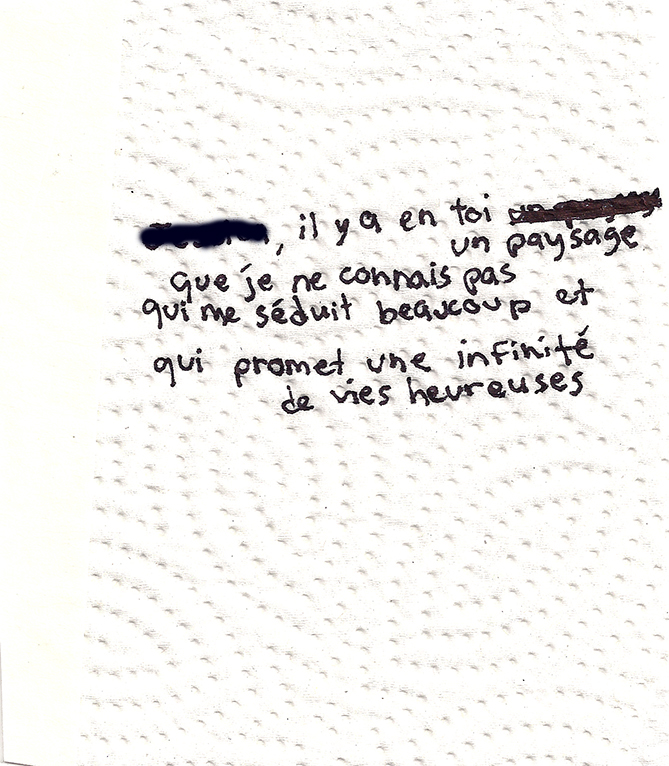 , il y a en toi
un paysage
que je ne connais pas
qui me séduit beaucoup et
qui promet une infinité
de vies heureuses